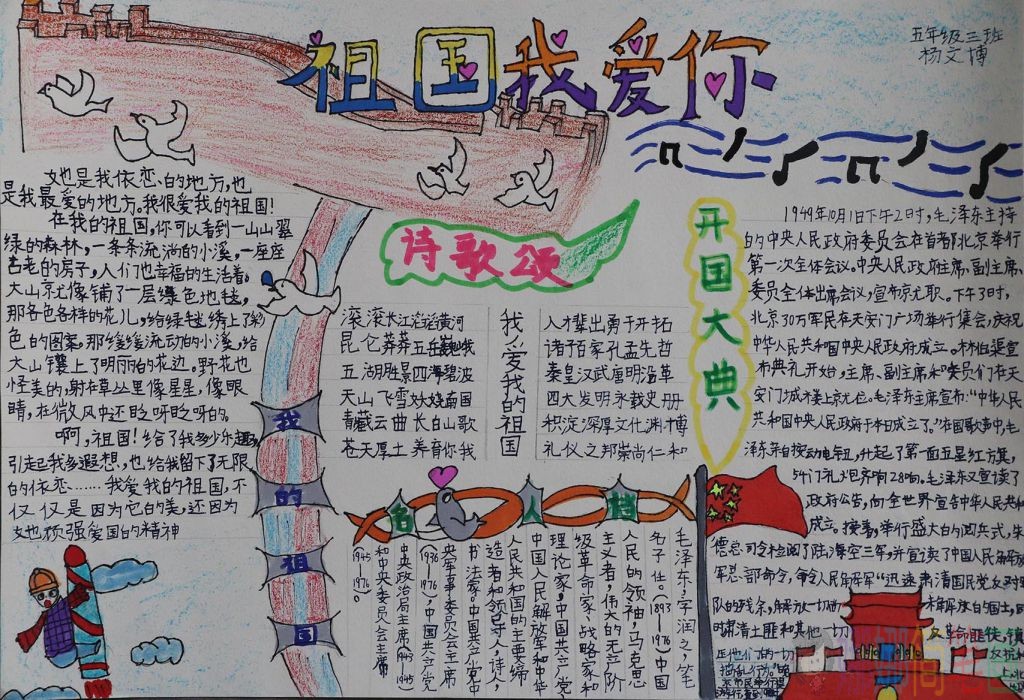 祖国我爱你
五年级三班
杨文博
她也是我依恋的地方,也
是我最爱的地方。我很爱我的祖国!
在我的祖国,你可以看到一山山翠
绿的森林,一条条流淌的小溪,一座座
古老的房子,人们也幸福的生活着。
大山就像铺了一层绿色地毯,
那各色各样的花儿,给绿毯绣上了彩
色的图案。那缓缓流动的小溪,给
大山镶上了明丽的花边。野花也
怪美的,射在草丛里像星星,像眼
睛,在微风中还眨呀眨呀的。
啊,祖国!给了我多少乐趣,
引起我多遐想,也给我留下了无限
的依恋……我爱我的祖国,不
仅仅是因为它的美,还因为
她顽强爱国的精神
我的祖国
诗歌颂
滚滚长江滔滔黄河
昆仑莽莽五岳巍峨
五湖胜景四海碧波
天山飞雪妖娆南国
青藏云曲长白山歌
苍天厚土养育你我
我爱我的祖国
人才辈出勇于开拓
诸子百家孔孟先哲
秦皇汉武唐明沿革
四大发明永载史册
积淀深厚文化渊博
礼仪之邦崇尚仁和
名人档
毛泽东,字润之,笔
名子任。(1893—1976)中国
人民的领袖,马克思
主义者,伟大的无产阶
级革命家、战略家和
理论家,中国共产党
中国人民解放军和中华
人民共和国的主要缔
造者和领导人,诗人,
书法家。中国共产党中
央军事委员会主席
(1936—1976),中国共产党
中央政治局主席(1943—1945
和中央委员会主席
(1945—1976)。
开国大典
1949年10月1日下午2时,毛泽东主持
的中央人民政府委员会在首都北京举行
第一次全体会议。中央人民政府主席、副主席、
委员全体出席会议,宣布就职。下午3时,
北京30万军民在天安门广场举行集会,庆祝
中华人民共和国中央人民政府成立。林伯渠宣
布典礼开始,主席、副主席和委员们在天
安门城楼上就位。毛泽东主席宣布:"中华人民
共和国中央人民政府于本日成立了。"在国歌声中,毛
泽东亲自按动电钮,升起了第一面五星红旗,
54门礼炮齐鸣28响。毛泽东又宣读了
政府公告,向全世界宣告中华人民共和
成立。接着,举行盛大的阅兵式,朱
德总司令检阅了陆海空三军,并宣读了中国人民解放
军总部命令,命令人民解放军"迅速肃清国民党反对
队的残余,解放一切
未解放的国土,同
时肃清土匪和其他一切
反革命匪徒,镇